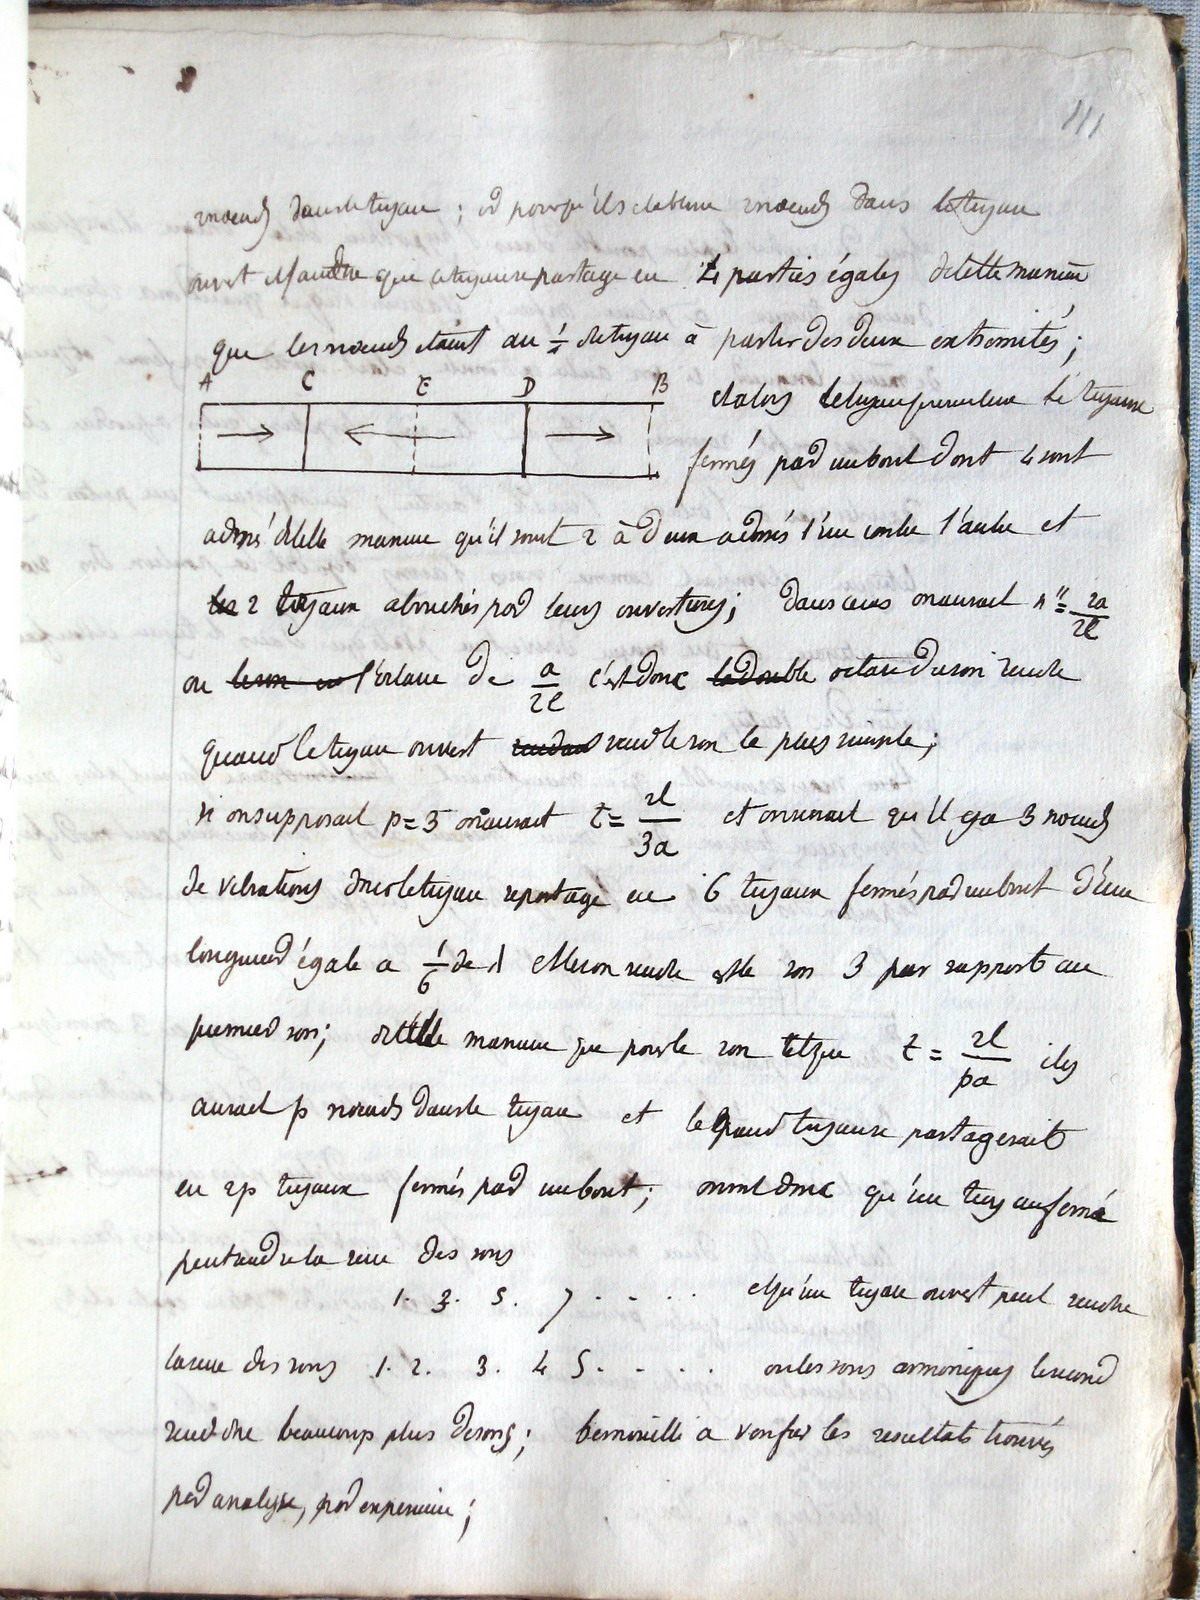 111
2 nœuds dans le tuyau ; et pour qu'ils etablisse 2 nœuds dans le tuyau
ouvert il faudra que ce tuyau se partage en 4 parties égales de telle maniere
que les nœuds etant au 1/4 du tuyau à partir des deux extremités ;
A C E D B
et alors le tuyau
fermés par un bout dont 4 sont
de telle maniere qu'il sont 2 à deux adossés l'un contre l'autre et
les 2 tuyaux abouchés par leurs ouvertures ; dans ce cas on aurait n'' = 2a/2l
ou le son l'octave de a/2l c'est donc la double octave du son rendu
quand le tuyau ouvert rend le son le plus simple ;
si on supposait p = 3 on aurait t = 2l/3a et on verrait qu'il y a 3 nœuds
de vibrations donc le tuyau se partage en 6 tuyaux fermés par un bout d'une
longueur égale a 1/6 de l et le son rendu est le son 3 par rapport au
premier son ; de telle maniere que pour le son tel que t = 2l/pa il y
aurait p nœuds dans le tuyau et le grand tuyau se partagerait
en 2p tuyaux fermés par un bout ; on voit donc qu'un tuyau fermé
peut rendre la serie des sons
1. 3. 5. 7 . . . . et qu'un tuyau ouvert peut rendre
la serie des sons 1. 2. 3. 4 5 . . . . ou les sons armoniques le second
rend donc beaucoup plus de sons ; bernouilli a verifier les resultats trouvés
par analyse, par experience ;